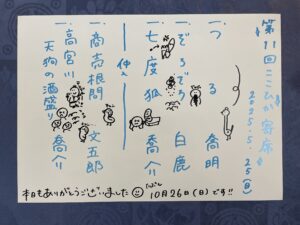 第11回ここが寄席
2025.5.25(日)
一、つる 喬明
一、ぞろぞろ 白鹿
一、七度狐 喬介
仲入
一、商売根問 文五郎
一、高宮川天狗の酒盛り 喬介
本日もありがとうございました
10月26日(日)です!!